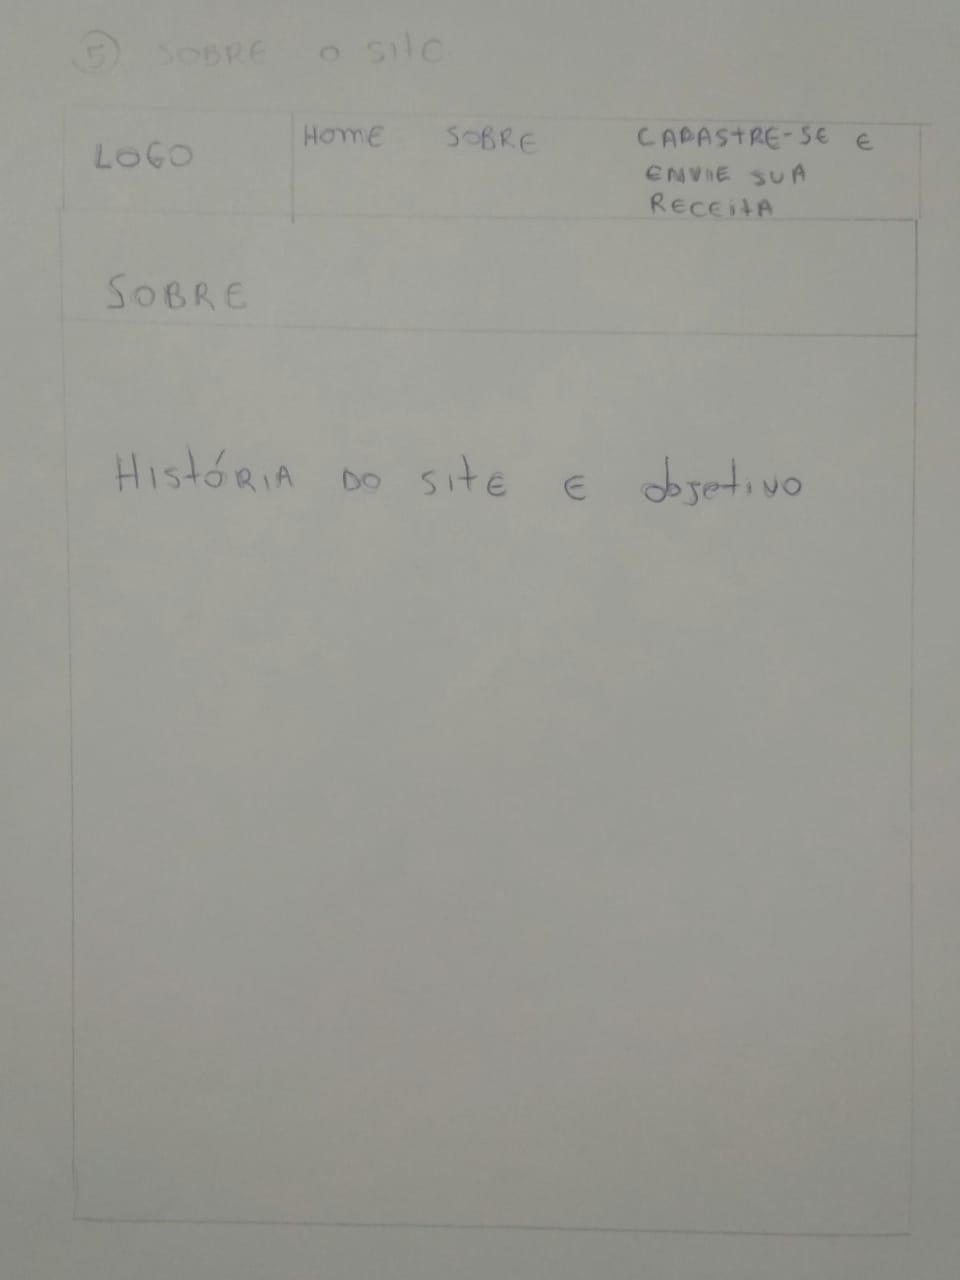 5 SOBRE O SITE
LOGO HOME SOBRE CADASTRE-SE E
ENVIE SUA
RECEITA
SOBRE
HISTÓRIA DO SITE E objetivo